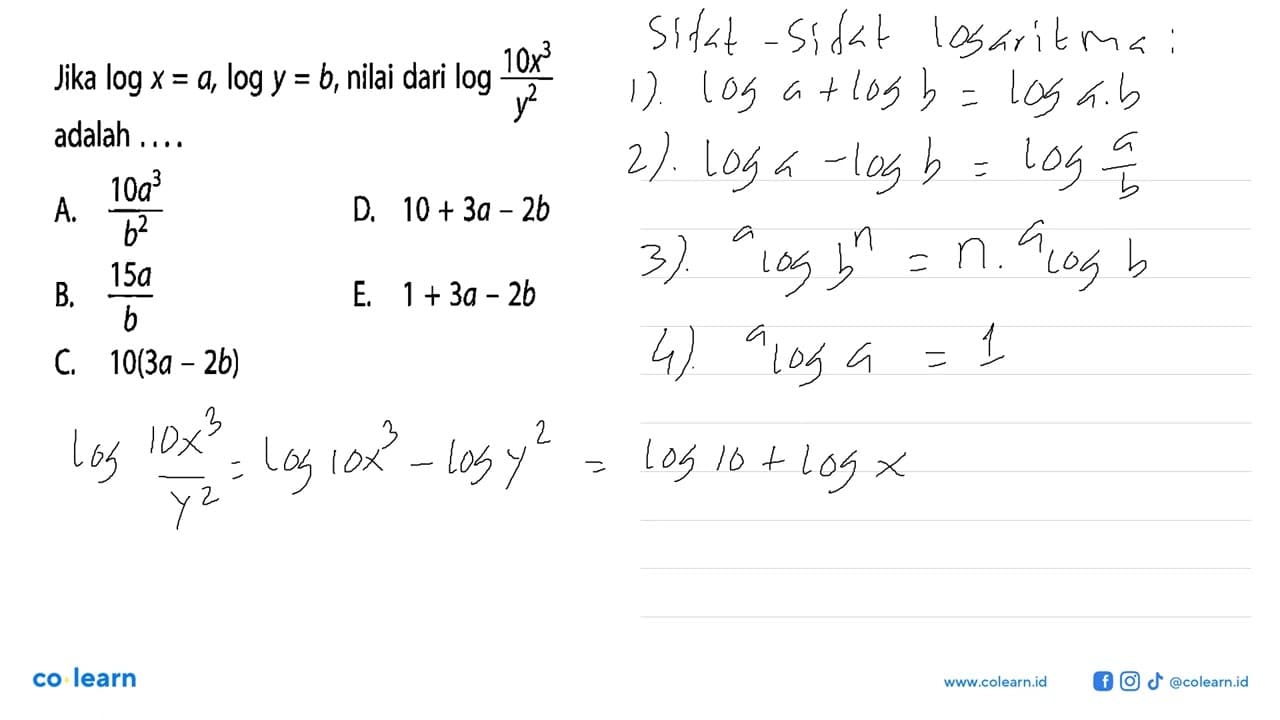 Jika log x = a, log y = b, nilai dari log 10x³/y²
adalah ....
A. 10a³/b²
B. 15a/b
C. 10(3a – 2b)
D. 10 + 3a – 2b
E. 1 + 3a – 2b
Sifat-sifat logaritma:
1). log a + log b = log a.b
2). log a - log b = log a/b
3). ᵃlog bⁿ = n. ᵃlog b
4). ᵃlog a = 1
log 10x³/y² = log 10x³ - log y² = log 10 + log x
co learn
www.colearn.id
@colearn.id